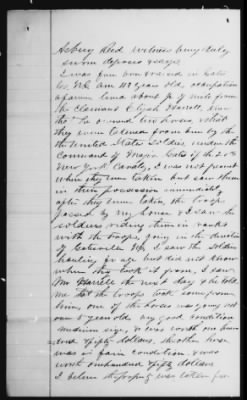 Asbury Reid witness being duly
sworn deposes & says
I was born and raised in Gates
Co. N.C. Am 48 years old, occupation
a farmer lived about ¾ of mile from
the claimant Elijah Harrell, knew
the two horses, that
they were taken from him by the
the United States Soldiers, under the
Command of Major Cates of the 20th
New York Cavalry, I was not present
when they were taken but saw them
in their possession immediately
after they were taken, the troops
passed by my house & I saw the
soldiers riding them in ranks
with the troops, going in the direction
of Gatesville NC, I saw the soldiers
hauling forage but did not know
where they took it from, I saw
Mr Harrell the next day & he told
me that the troops took some from
him, one of the horses was young not
over 5 years old in good condition
medium size, & was worth one hundred
and fifty dollars. the other horse
was in fair condition & was
worth one hundred fifty dollars
I believe the property was taken for